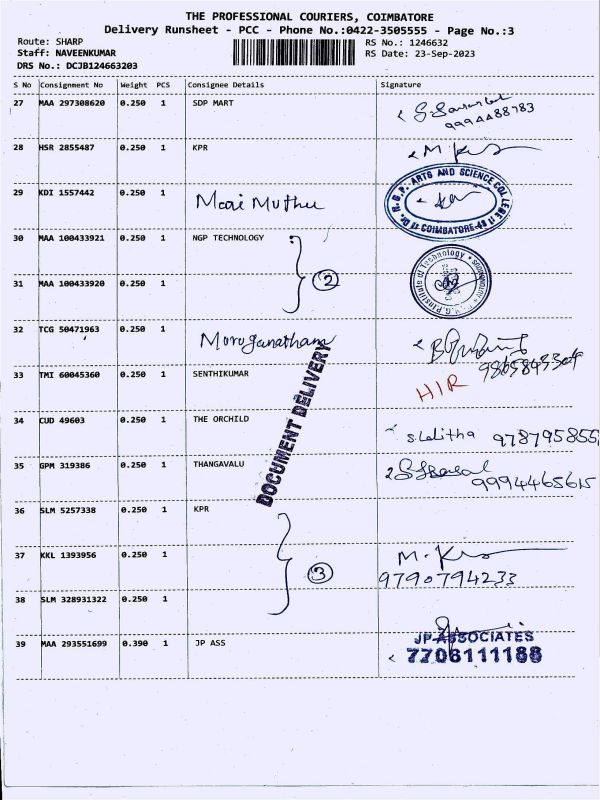 THE PROFESSIONAL COURIERS, COIMBATORE
Delivery Runsheet - PCC - Phone No.:0422-3505555 - Page No.:3
Route: SHARP
RS No.: 1246632
Staff: NAVEENKUMAR
RS Date: 23-Sep-2023
DRS No.: DCJB124663203
S No Consignment No Weight PCS Consignee Details Signature
27 MAA 297308620 0.250 1 SDP MART
9994488783
28 HSR 2855487 0.250 1 KPR
29 KDI 1557442 0.250 1 Mari Muthu
Dr. N. G. P. ARTS AND SCIENCE COLLEGE
COIMBATORE-48
30 MAA 100433921 0.250 1 NGP TECHNOLOGY
2
31 MAA 100433920 0.250 1
Institute of Technology
32 TCG 50471963 0.250 1 Muruganatham
33 TMI 60045360 0.250 1 SENTHIKUMAR
HIR
DOCUMENT DELIVERY
34 CUD 49603 0.250 1 THE ORCHILD
S. Lalitha 978795855
35 GPM 319386 0.250 1 THANGAVALU
9994465615
36 SLM 5257338 0.250 1 KPR
3
37 KKL 1393956 0.250 1
9790794233
38 SLM 328931322 0.250 1
39 MAA 293551699 0.390 1 JP ASS
JP ASSOCIATES
7706111188